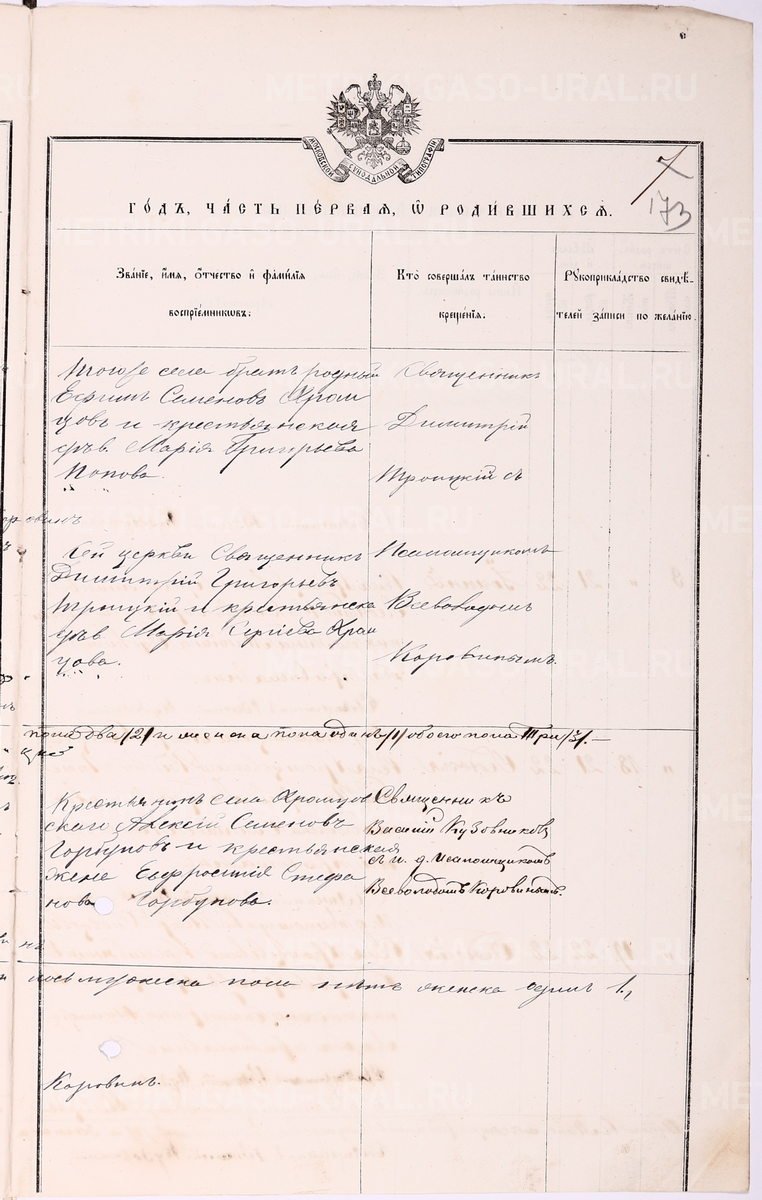 METRICALGASO-URAL.RU
МОСКОВСКОЙ СѴНОДАЛЬНОЙ ТИПОГРАФІИ
7
173
ГО́ДЪ, ЧА́СТЬ ПЕ́РВАЯ, Ѿ РОДИ́ВШИХСЯ.
Зва́ніе, и́мя, о́тчество и҆ фами́лія
воспріе́мниковъ:
Кто̀ соверша́лъ та́инство
креще́нія:
Рꙋкоприкла́дство свидѣ-
телей за́писи по жела́нію.
тогоже села братъ родный
Ефимъ Семеновъ Храм
цовъ и крестьянская
дѣв. Марія Григорьева
Попова.
Священникъ
Димитрій
Троицкій съ
Сей церкви Священникъ
Димитрій Григорьевъ
Троицкій и крестьянска
дѣв Марія Сергіева Храм
цова.
Псаломщикомъ
Всеволодомъ
Коровинымъ.
пола два /2/ и женска пола одинъ /1/ обоего пола три /3/. —
Крестьянинъ села Храмцов
скаго Алексій Семеновъ
Горбуновъ и крестьянская
жена Евфросинія Стефа
нова Горбунова.
Священникъ
Василій Кузовниковъ
съ и. д. псаломщикомъ
Всеволодомъ Коровинымъ.
мужеска пола пять женска одинъ 1,
Коровинъ.